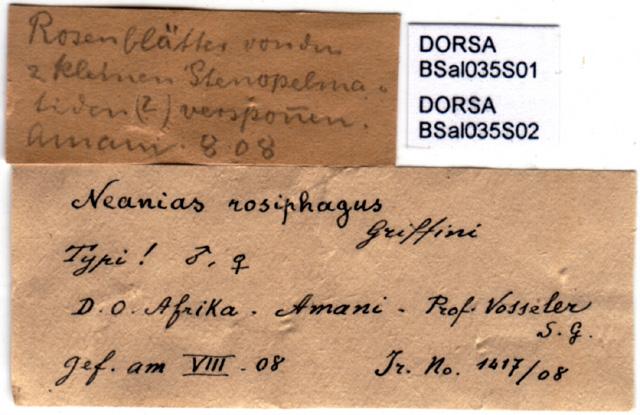 Rosenblätter von den
2 kleinen Stenopelma-
tiden (?) versponnen.
Amani. 8 08
DORSA
BSal035S01
DORSA
BSal035S02
Neanias rosiphagus
Griffini
Typi! ♂, ♀
D. O. Afrika. Amani - Prof. Vosseler
S. G.
gef. am VIII. 08
Jr. No. 1417/08